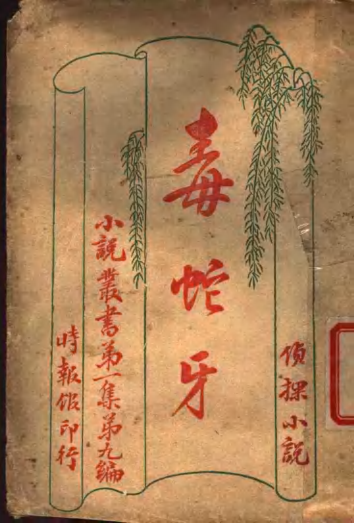 偵探小説
毒蛇牙
小説叢書第一集第九編
時報館印行